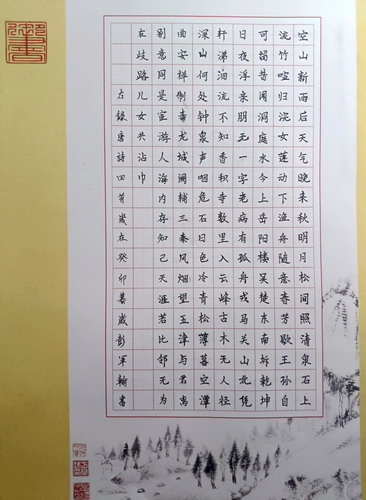 空山新雨后天气晚来秋明月松间照清泉石上
流竹喧归浣女莲动下渔舟随意春芳歇王孙自
可留昔闻洞庭水今上岳阳楼吴楚东南坼乾坤
日夜浮亲朋无一字老病有孤舟戎马关山北凭
轩涕泗流不知香积寺数里入云峰古木无人径
深山何处钟泉声咽危石日色冷青松薄暮空潭
曲安禅制毒龙城阙辅三秦风烟望五津与君离
别意同是宦游人海内存知己天涯若比邻无为
在歧路儿女共沾巾
右錄唐詩四首歲在癸卯暮歲彭军翰書